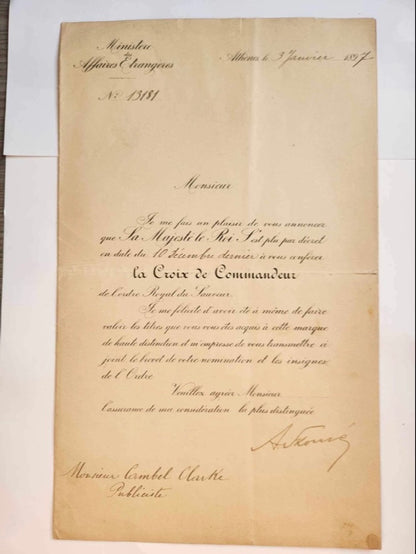 Ministère
des
Affaires Etrangères
Athènes le 3 Janvier 1897
No. 13181
Monsieur
Je me fais un plaisir de vous annoncer
que Sa Majesté le Roi S'est plu par décret
en date du 10 Décembre dernier à vous conférer
la Croix de Commandeur
de l'ordre Royal du Sauveur.
Je me félicite d'avoir été à même de faire
valoir les titres que vous vous êtes acquis à cette marque
de haute distinction et m'empresse de vous transmettre ci
joint le brevet de votre nomination et les insignes
de l'Ordre
Veuillez agréer Monsieur
l'assurance de ma considération la plus distinguée
Monsieur Cambel Clarke
Publiciste